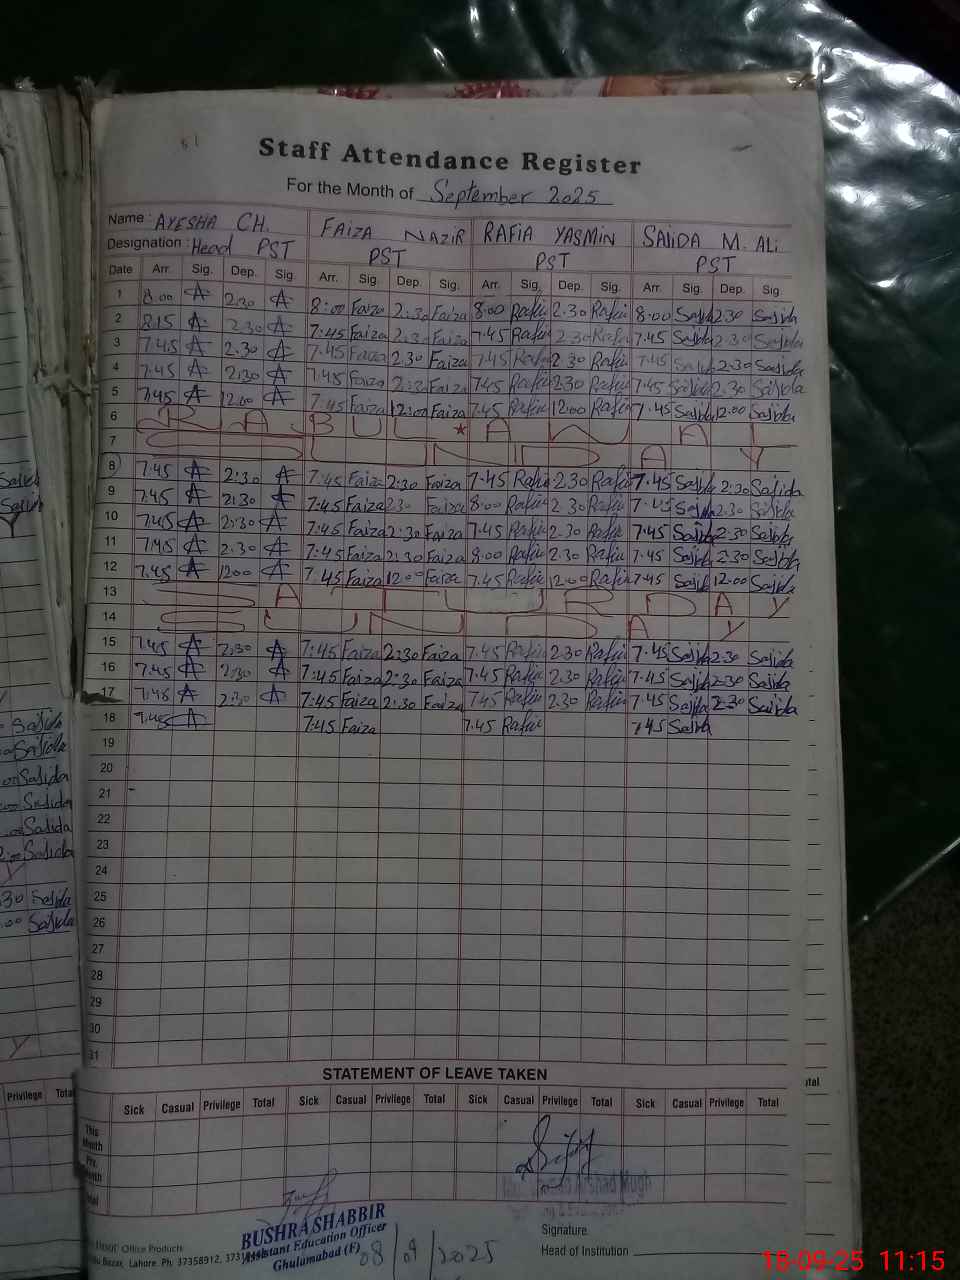 Staff Attendance Register
For the Month of September 2025
Name : AYESHA CH. FAIZA NAZIR RAFIA YASMIN SAJIDA M. ALI
Designation : Head PST PST PST PST
Date Arr. Sig. Dep. Sig. Arr. Sig. Dep. Sig. Arr. Sig. Dep. Sig. Arr. Sig. Dep. Sig.
1 8.00 A 2:30 A 8:00 Faiza 2:30 Faiza 8:00 Rafia 2.30 Rafia 8:00 Sajida 2:30 Sajida
2 8:15 A 2:30 A 7:45 Faiza 2:30 Faiza 7.45 Rafia 2:30 Rafia 7.45 Sajida 2:30 Sajida
3 7:45 A 2.30 A 7.45 Faiza 2:30 Faiza 7.45 Rafia 2.30 Rafia 7.45 Sajida 2:30 Sajida
4 7:45 A 2:30 A 7:45 Faiza 2:30 Faiza 7:45 Rafia 2:30 Rafia 7.45 Sajida 2.30 Sajida
5 7:45 A 12.00 A 7:45 Faiza 12:00 Faiza 7.45 Rafia 12:00 Rafia 7.45 Sajida 12.00 Sajida
6 RABUL * AWAL
7 SUNDAY
8 7:45 A 2:30 A 7:45 Faiza 2:30 Faiza 7.45 Rafia 2.30 Rafia 7.45 Sajida 2:30 Sajida
9 7.45 A 2:30 A 7:45 Faiza 2:30 Faiza 8:00 Rafia 2.30 Rafia 7.45 Sajida 2.30 Sajida
10 7:45 A 2:30 A 7:45 Faiza 2:30 Faiza 7.45 Rafia 2.30 Rafia 7.45 Sajida 2:30 Sajida
11 7:45 A 2.30 A 7:45 Faiza 2:30 Faiza 8:00 Rafia 2.30 Rafia 7.45 Sajida 2:30 Sajida
12 7.45 A 12:00 A 7:45 Faiza 12:00 Faiza 7.45 Rafia 12:00 Rafia 7.45 Sajida 12.00 Sajida
13 SATURDAY
14 SUNDAY
15 7.45 A 2:30 A 7:45 Faiza 2:30 Faiza 7.45 Rafia 2.30 Rafia 7.45 Sajida 2:30 Sajida
16 7.45 A 2:30 A 7:45 Faiza 2:30 Faiza 7.45 Rafia 2.30 Rafia 7.45 Sajida 2:30 Sajida
17 7:48 A 2:30 A 7:45 Faiza 2:30 Faiza 7.45 Rafia 2.30 Rafia 7.45 Sajida 2:30 Sajida
18 7:45 A 7:45 Faiza 7.45 Rafia 7:45 Sajida
19
20
21
22
23
24
25
26
27
28
29
30
31
STATEMENT OF LEAVE TAKEN
Sick Casual Privilege Total Sick Casual Privilege Total Sick Casual Privilege Total Sick Casual Privilege Total
This Month
Pre. Month
Total
BUSHRA SHABBIR
Assistant Education Officer
Ghulamabad (F)
08/09/2025
Signature
Head of Institution
Office Products
Bazar, Lahore. Ph: 37358912,
Privilege Total
18-09-25 11:15